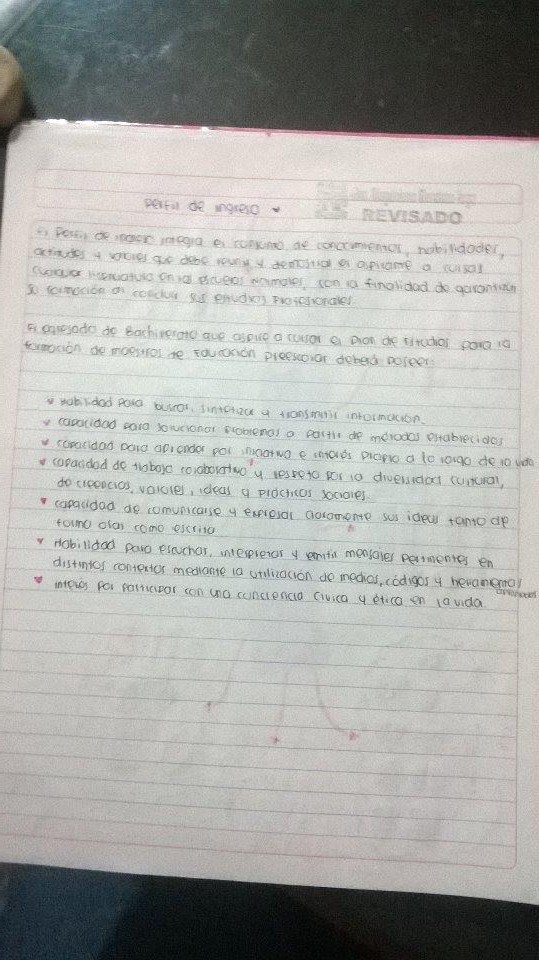 Perfil de ingreso
REVISADO
El Perfil de ingreso integra el conjunto de conocimientos, habilidades,
actitudes y valores que debe reunir y demostrar el aspirante a cursar
cualquier licenciatura en las escuelas normales, con la finalidad de garantizar
su formación al concluir sus estudios Profesionales.
El egresado de Bachillerato que aspire a cursar el Plan de Estudios para la
formación de maestros de Educación preescolar deberá poseer:
Habilidad para buscar, sintetizar y transmitir información.
capacidad para solucionar problemas a partir de métodos establecidos
capacidad para aprender por iniciativa e interés propio a lo largo de la vida
capacidad de trabajo colaborativo y respeto por la diversidad cultural,
de creencias, valores, ideas y prácticas sociales.
capacidad de comunicarse y expresar claramente sus ideas tanto de
forma oral como escrita
Habilidad para escuchar, interpretar y emitir mensajes pertinentes en
distintos contextos mediante la utilización de medios, códigos y herramientas
interés por participar con una conciencia cívica y ética en la vida.